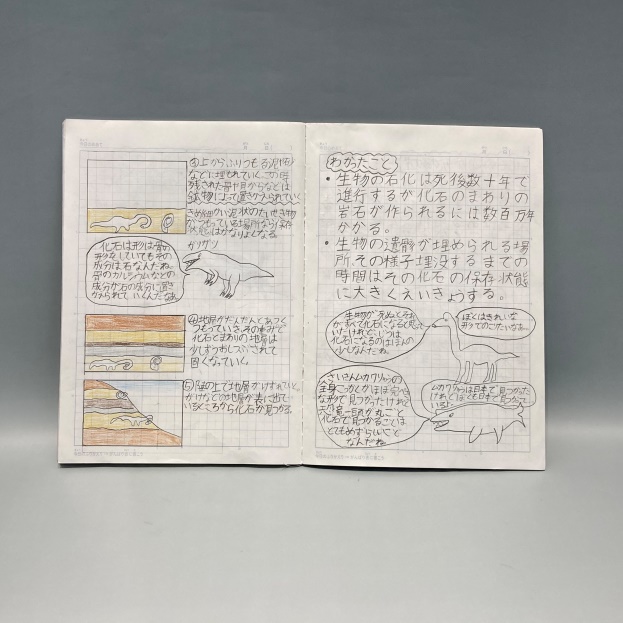 ③上からふりつもる泥や砂
などに埋もれていく。この時
残された骨や貝からなどは
鉱物によって置きかえられていく
きめが細かい泥状のたい積物
がつもっている場所なら保存
状態はかなりよくなる
ガリガリ
化石は形は骨の
形をしていてもその
成分は石なんだね。
骨のカルシウムなどの
成分が石の成分に置き
かえられていくんだなあ
④地層がだんだんとあつく
つもっていき、その重みで
化石とまわりの地層は
少しずつおしつぶされて
固くなっていく。
⑤陸の上で地層がけずれていく。
がけなどの地層が表に出て
いるところから化石が見つかる。
わかったこと
・生物の石化は死後数十年で
進行するが化石のまわりの
岩石が作られるには数百万年
かかる。
・生物の遺骸が埋められる場
所その様子埋没するまでの
時間はその化石の保存状態
に大きくえいきょうする。
生物が死ぬとそれ
がすべて化石になると思って
いたけれど、じつは
化石になるのはほんの
少しなんだね。
ぼくはきれいな
形でのこったいなあ。
さいきんムカワリュウの
全身こっかくがほぼ完ぺき
な形で見つかったけれど
恐竜一頭が丸ごと
化石で見つかることは
とてもめずらしいこと
なんだね
ムカワリュウは日本で見つかった
けれどぼくも日本で見つかって
いるよ。